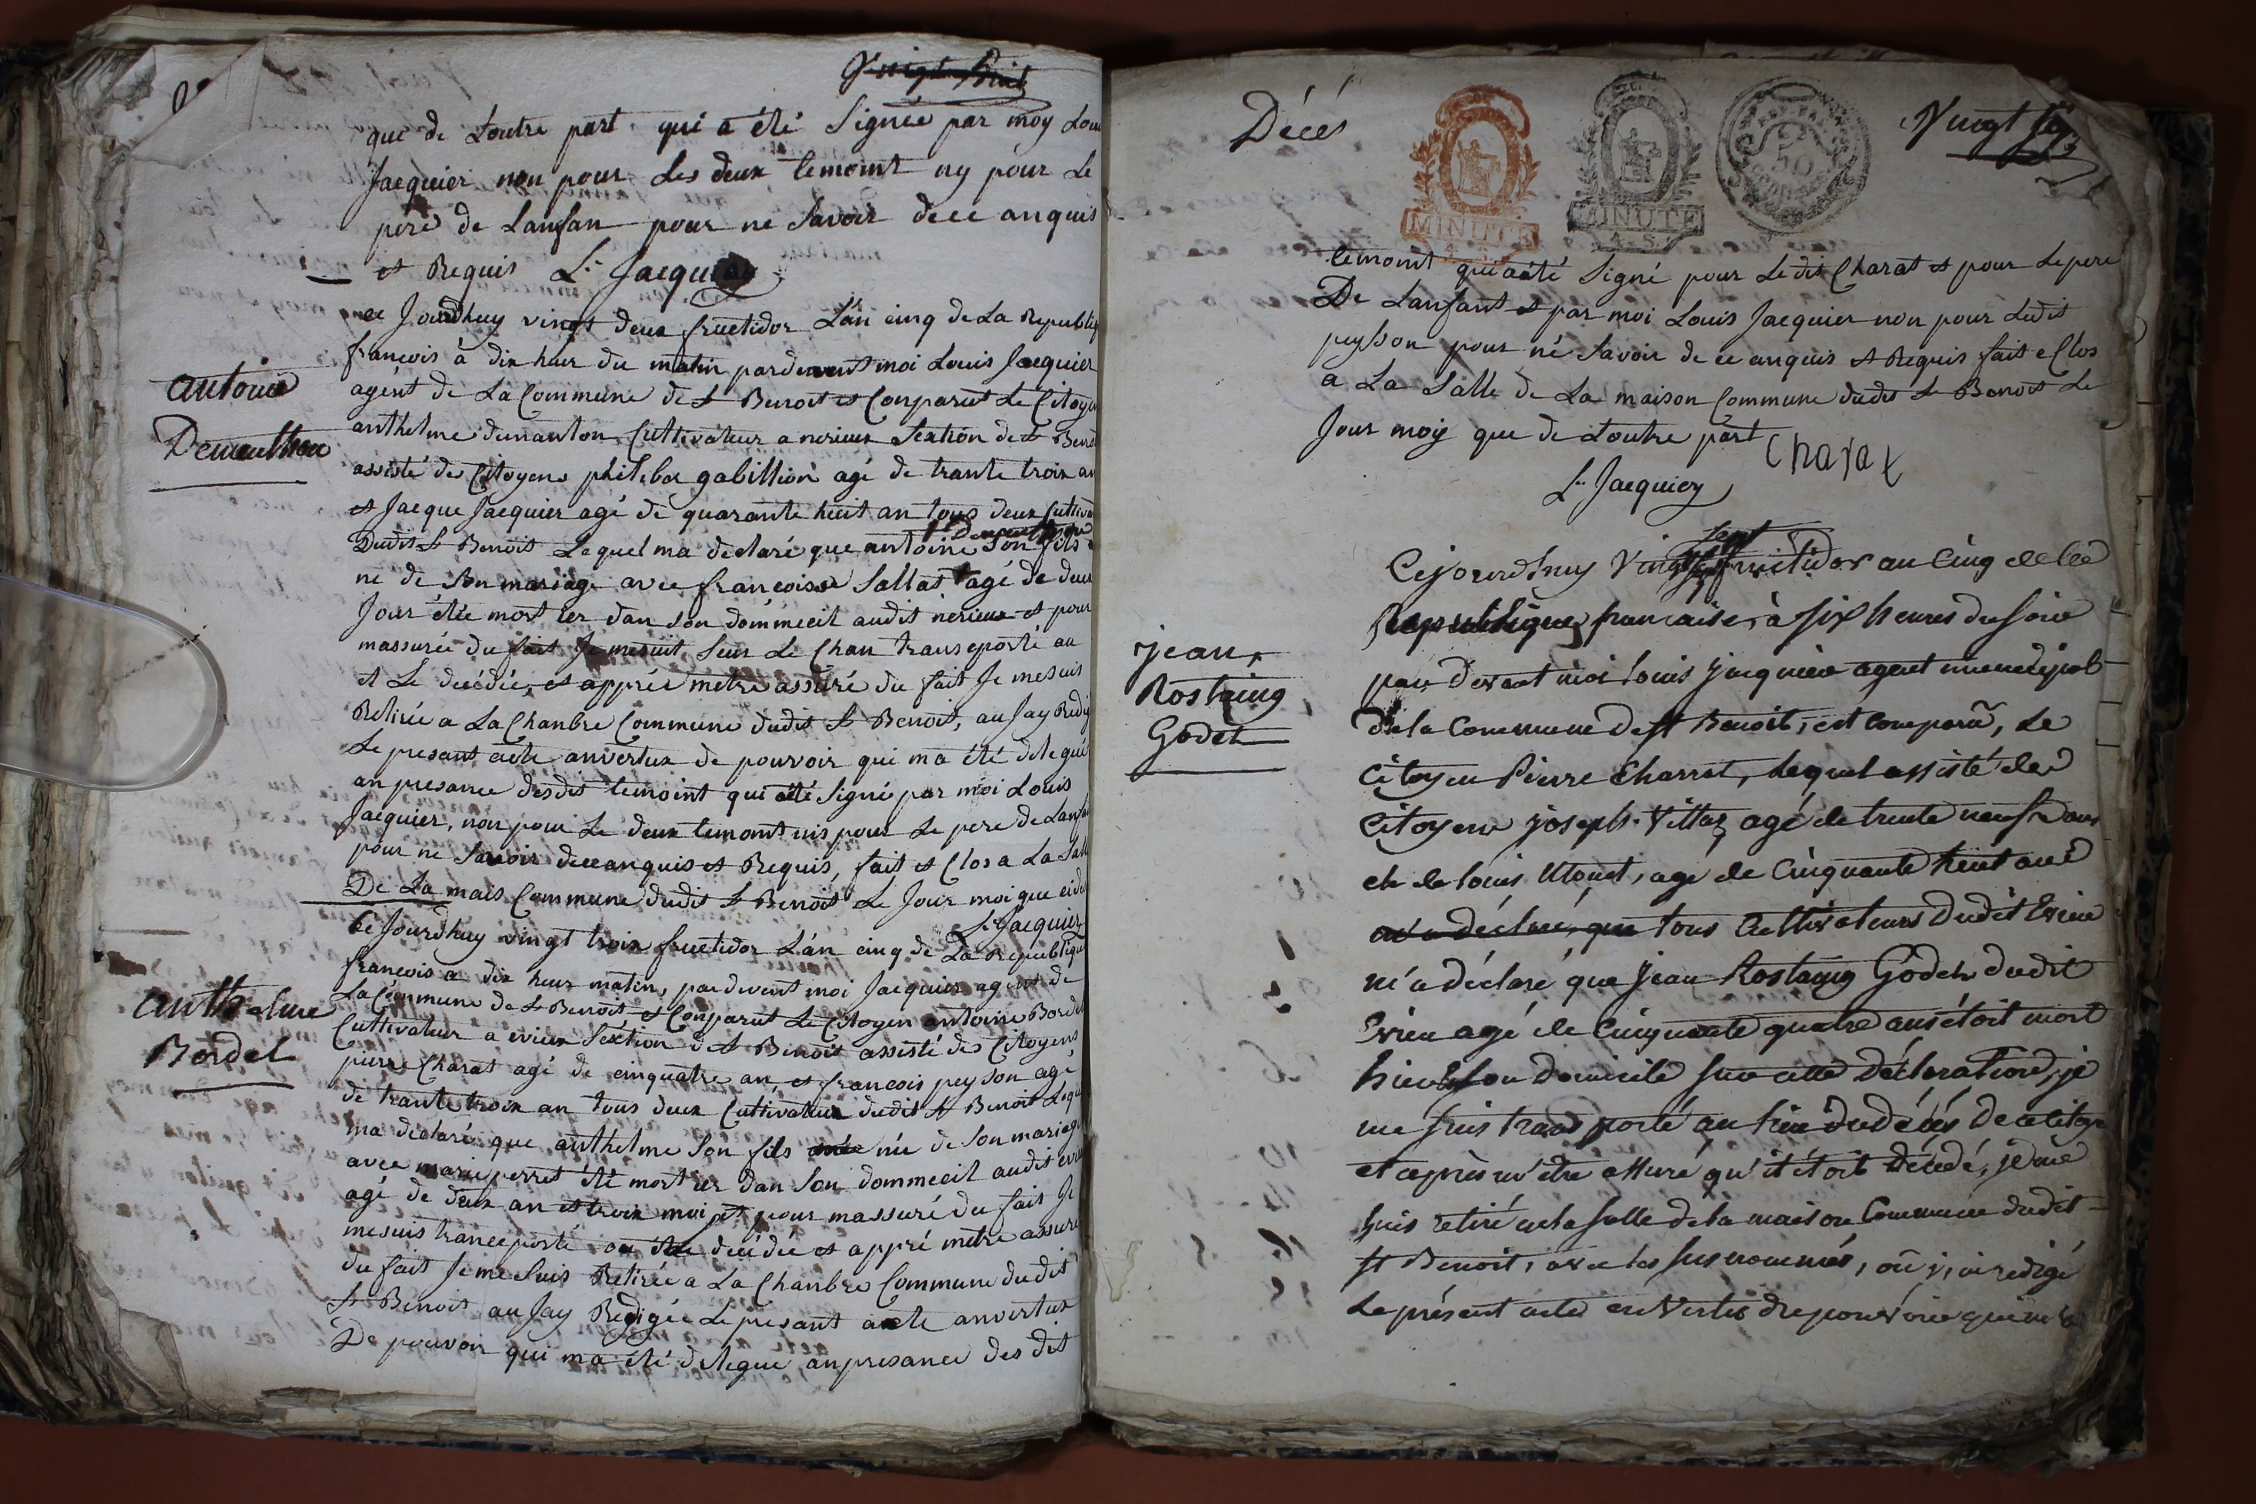 que de Loutre part qui a été Signée par moy Lou
Jacquier non pour Les deux temoint ny pour Le
pere de Lanfan pour ne Savoir de ce anquis
et Requis L. Jacquier
ce Jourdhuy vingt deux fructidor Lan cinq de La Republiq
francois à dix heur du matin pardevent moi Louis Jacquier
antoine
Demeuthon
agént de La Commune de St Benoit et Conparut Le Citoyen
anthelme dunanton Cultivateur a nerieux Sextion de St Benoit
assisté des Citoyens philebor gabillion agé de trante troix an
et Jacque Jacquier agé de quarante huit an tous deux Cultiva
Dudit St Benoit Lequel ma declaré que antoine Son fils
né de Son mariage avec francoisse Sallat agé de deux
Jour été mort ier dan Son dommecil audit nerieux et pour
massurée du fait Je mesuit Seur Le Chan transeporté au
Le decédée, et apprér metre assuré du fait Je mesuis
Retirée a La Chanbre Commune dudit St Benoit, au Jay Redig
Le presant acte anvertux de pouvoir qui ma été delegué
an presance desdit temoint qui aété Signé par moi Louis
Jacquier, non pour Le deux temoint nis pour Le pere de Lanfan
pour ne Savoir deceanquis et Requis, fait et Clos a La Sall
De La mais Commune dudit St Benoit Le Jour moi que
L. Jacquier
Ce Jourdhuy vingt troix fructidor Lan cinq de La Republique
francois a dix heur matin, pardevent moi Jacquier agent de
anthelme
Bordel
La Commune de St Benoit et Conparut Le Citoyen antoine Bordel
Cultivateur a evieux Séxtion de St Benoit assisté des Citoyens
pierre Charat agé de cinquatre an, et francois peyson agé
de trante troix an tous deux Cultivateur dudit St Benoit Lequ
ma declaré que anthelme Son fils née de Son mariage
avec marie perret été mort ier dan Son dommecil audit
agé de deux an et troix moi et pour massuré du fait Je
mesuis transporté ou decédée et appré metre assuré
du fait Je me Suis Retirée a La Chanbre Commune dudit
St Benoit au Jay Redigée Le presant acte anvertux
De pouvoir qui ma été delegue anpresance des dit
Décés
MINUTE
A.S.
MINUTE
A.S.
50
temoint qui aété Signé pour Ledit Charat et pour Le pere
De Lanfant et par moi Louis Jacquier non pour Ledit
peyson pour né Savoir de ce anquis et Requis fait e Clos
a La Salle de La maison Commune dudit St Benoit Le
Jour moy que de Loutre part Charat
L. Jacquier
sept
Cejourd'huy Vingt fructidor an Cinq de la
Republique francaise, à six heures du soir
jean
Rostaing
Godet
par Devant moi Louis Jacquier agent municipal
de la Commune de St Benoit, est Comparu, Le
Citoyen Pierre Charret, Lequel assisté de
Citoyens joseph Villaz agé de trente neuf ans
et de louis Monet, agé de Cinquante huit ans
m'a déclaré, que tous Cultivateurs Dudit Evieu
m'a déclaré que jean Rostaing Godet dudit
Evieu agé de Cinquante quatre ans étoit mort
hier son domicile sur cette Déclaration, je
me suis transporté au lieu du décés
et après m'être assuré qu'il étoit Décédé, je me
suis retiré a la salle de la maison Commune dudit
St Benoit, avec les susnommés, où j'ai redigé
Le présent acte en Vertu du pouvoir qui m'a